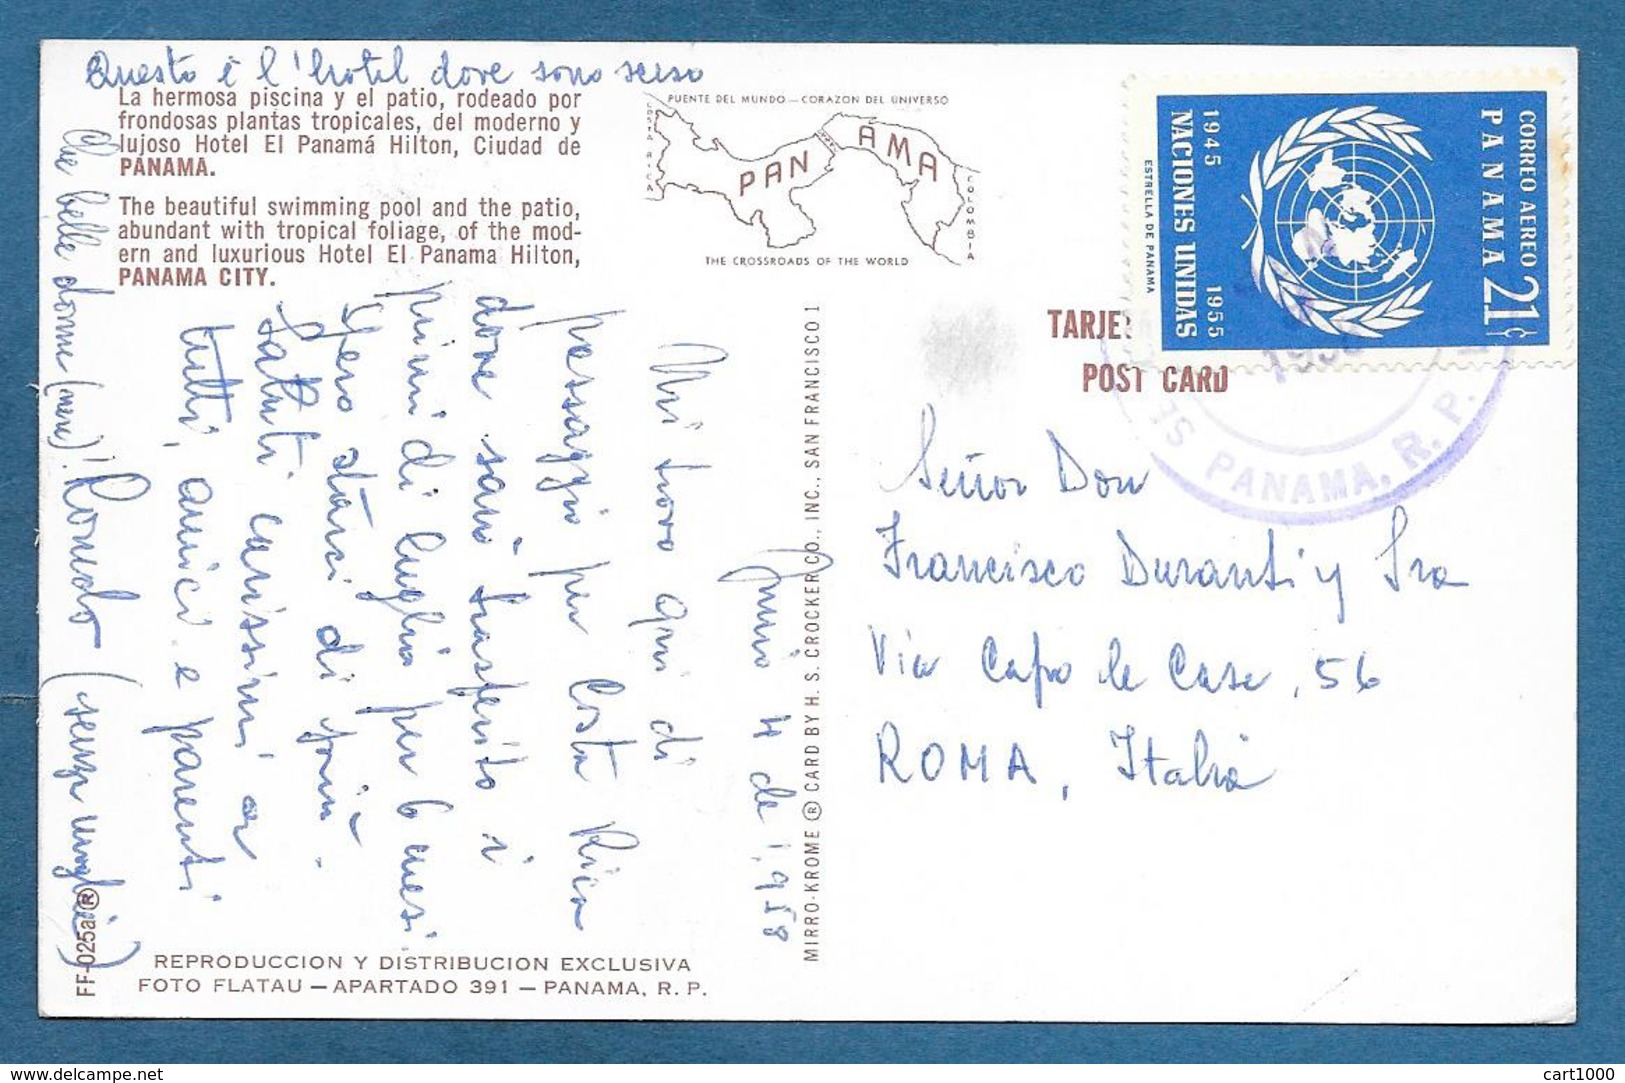 Questo è l'hotel dove sono sceso
La hermosa piscina y el patio, rodeado por
frondosas plantas tropicales, del moderno y
lujoso Hotel El Panamá Hilton, Ciudad de
PANAMA.
The beautiful swimming pool and the patio,
abundant with tropical foliage, of the mod-
ern and luxurious Hotel El Panama Hilton,
PANAMA CITY.
PUENTE DEL MUNDO — CORAZON DEL UNIVERSO
COSTA RICA
PANAMA
COLOMBIA
THE CROSSROADS OF THE WORLD
Junio 4 de 1,958
Mi trovo qui di
passaggio per Costa Rica
dove sarò trasferito i
primi di luglio per 6 mesi.
Spero starci di più.
Saluti carissimi a
tutti, amici e parenti
che belle donne (nere)! Romolo (senza moglie)
FF-025a®
REPRODUCCION Y DISTRIBUCION EXCLUSIVA
FOTO FLATAU — APARTADO 391 — PANAMA, R. P.
MIRRO-KROME ® CARD BY H. S. CROCKER CO., INC., SAN FRANCISCO 1
TARJE
POST CARD
CORREO AEREO
PANAMA 21¢
1945 1955
NACIONES UNIDAS
ESTRELLA DE PANAMA
PANAMA, R. P.
Señor Don
Francisco Duranti y Sra
Via Capo le Case, 56
ROMA, Italia
delcampe.net
cart1000